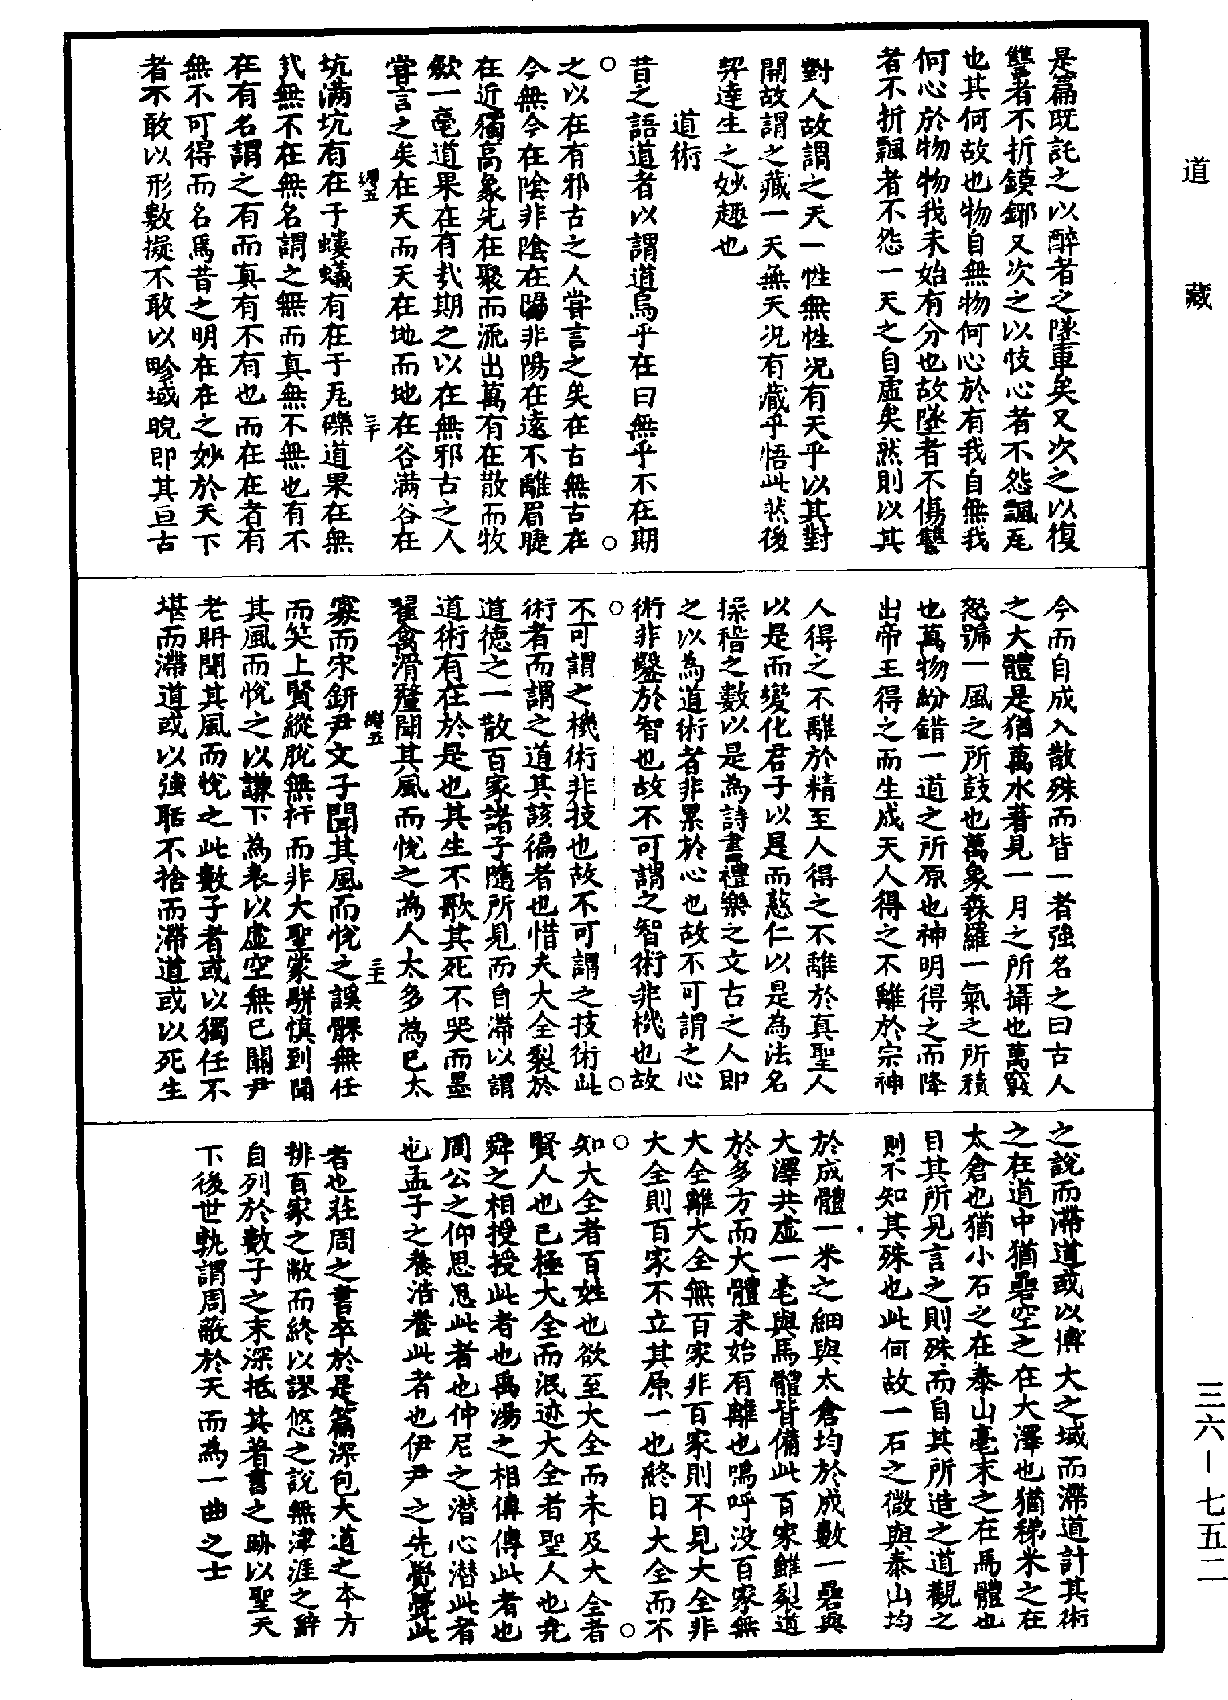 道藏
是篇既託之以醉者之墜車矣又次之以復
讐者不折鏌鎁又次之以忮心者不怨飄瓦
也其何故也物自無物何心於有我自無我
何心於物物我未始有分也故墜者不傷讐
者不折飄者不怨一天之自虛矣然則以其
對人故謂之天一性無性況有天乎以其對
開故謂之藏一天無天況有藏乎悟此然後
契達生之妙趣也
道術
昔之語道者以謂道烏乎在曰無乎不在期
之以在有邪古之人嘗言之矣在古無古在
今無今在陰非陰在陽非陽在遠不離眉睫
在近獨高象先在聚而流出萬有在散而收
歛一毫道果在有㢤期之以在無邪古之人
嘗言之矣在天而天在地而地在谷滿谷在
坑滿坑有在于螻蟻有在于瓦礫道果在無
㢤無不在無名謂之無而真無不無也有不
在有名謂之有而真有不有也而在在者有
無不可得而名焉昔之明在在之妙於天下
者不敢以形數擬不敢以畛域睨即其亘古
今而自成入散殊而皆一者強名之曰古人
之大體是猶萬水著見一月之所攝也萬竅
怒號一風之所鼓也萬象森羅一氣之所積
也萬物紛錯一道之所原也神明得之而降
出帝王得之而生成天人得之不離於宗神
人得之不離於精至人得之不離於真聖人
以是而變化君子以是而慈仁以是為法名
操稽之數以是為詩書禮樂之文古之人即
之以為道術者非累於心也故不可謂之心
術非鑿於智也故不可謂之智術非機也故
不可謂之機術非技也故不可謂之技術此
術者而謂之道其該徧者也惜夫大全裂於
道德之一散百家諸子隨所見而自滯以謂
道術有在於是也其生不歌其死不哭而墨
翟禽滑釐聞其風而悅之為人太多為己太
寡而宋鈃尹文子聞其風而悅之謑髁無任
而笑上賢縱脫無行而非大聖彭蒙田駢慎到聞
其風而悅之以謙下為表以虛空無已關尹
老聃聞其風而悅之此數子者或以獨任不
堪而滯道或以強聒不捨而滯道或以死生
之說而滯道或以博大之域而滯道計其術
之在道中猶礨空之在大澤也猶稊米之在
太倉也猶小石之在泰山毫末之在馬體也
自其所見言之則殊而自其所造之道觀之
則不知其殊也此何故一石之微與泰山均
於成體一米之細與太倉均於成數一礨與
大澤共虛一毫與馬體皆備此百家雖裂道
於多方而大體未始有離也嗚呼沒百家無
大全離大全無百家非百家則不見大全非
大全則百家不立其原一也終日大全而不
知大全者百姓也欲至大全而未及大全者
賢人也已極大全而泯迹大全者聖人也堯
舜之相授授此者也禹湯之相傳傳此者也
周公之仰思思此者也仲尼之潛心潛此者
也孟子之養浩養此者也伊尹之先覺覺此
者也莊周之書卒於是篇深包大道之本方
排百家之敝而終以謬悠之說無津涯之辭
自列於數子之末深抵其著書之跡以聖天
下後世孰謂周蔽於天而為一曲之士
三六－七五二